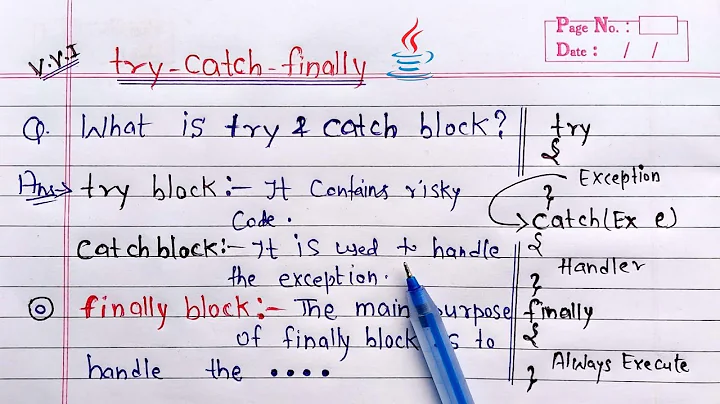 Page No. :
Date : / /
V.V.I
try-catch-finally
Q. What is try & catch block?
Ans→ try block:- It Contains risky
Code.
Catch block:- It is used to handle
the exception.
finally block:- The main purpose
of finally block is to
handle the ....
try
{
Exception
}
Catch(Ex e)
{
Handler
}
finally
{
Always Execute
}